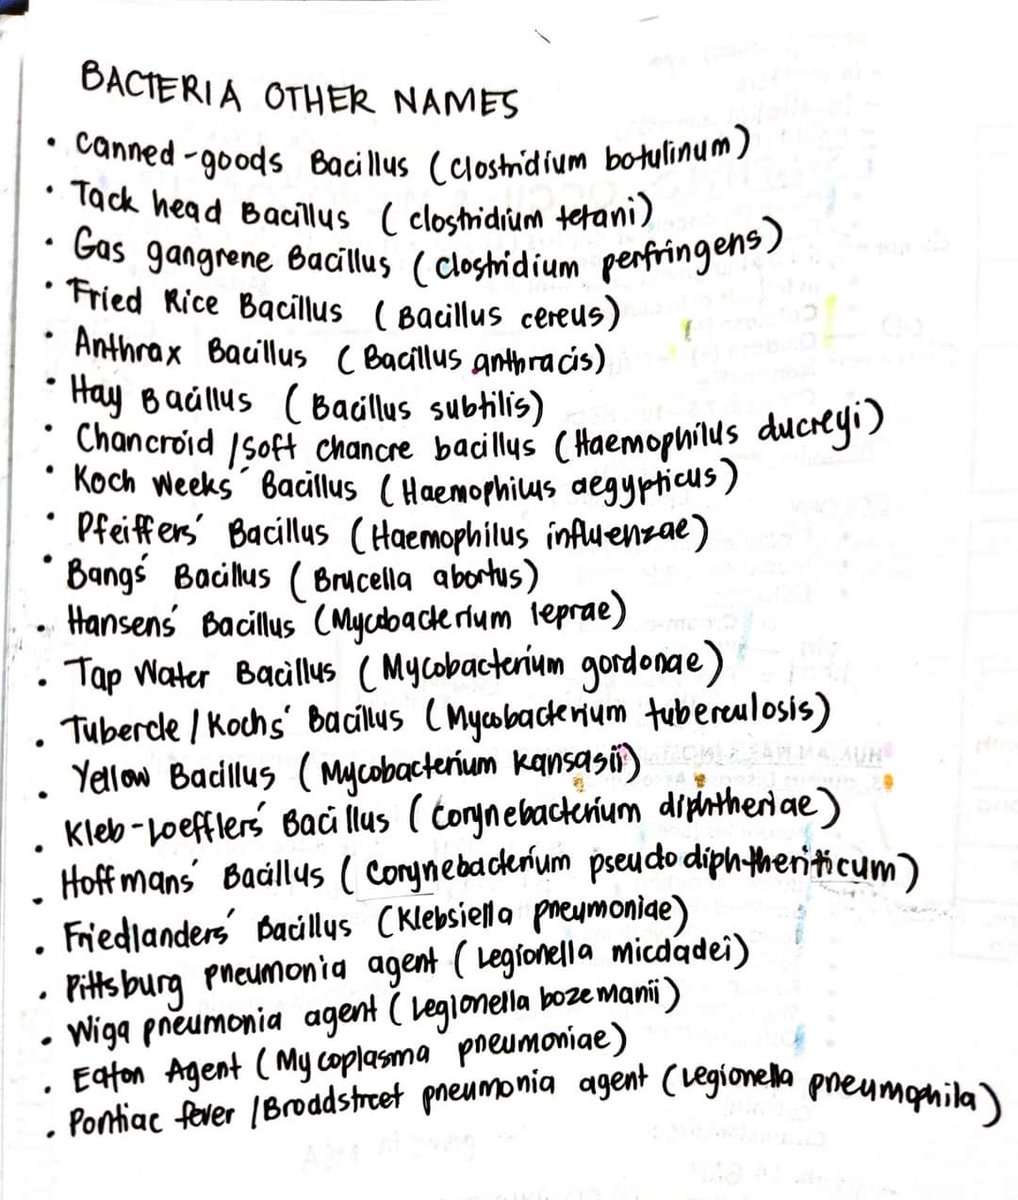 BACTERIA OTHER NAMES
• Canned-goods Bacillus (Clostridium botulinum)
• Tack head Bacillus (Clostridium tetani)
• Gas gangrene Bacillus (Clostridium perfringens)
• Fried Rice Bacillus (Bacillus cereus)
• Anthrax Bacillus (Bacillus anthracis)
• Hay Bacillus (Bacillus subtilis)
• Chancroid /soft chancre bacillus (Haemophilus ducreyi)
• Koch Weeks' Bacillus (Haemophilus aegypticus)
• Pfeiffers' Bacillus (Haemophilus influenzae)
• Bangs' Bacillus (Brucella abortus)
• Hansens' Bacillus (Mycobacterium leprae)
• Tap Water Bacillus (Mycobacterium gordonae)
• Tubercle / Kochs' Bacillus (Mycobacterium tuberculosis)
• Yellow Bacillus (Mycobacterium kansasii)
• Kleb-Loefflers' Bacillus (Corynebacterium diphtheriae)
• Hoffmans' Bacillus (Corynebacterium pseudodiphtheriticum)
• Friedlanders' Bacillus (Klebsiella pneumoniae)
• Pittsburg pneumonia agent (Legionella micdadei)
• Wiga pneumonia agent (Legionella bozemanii)
• Eaton Agent (Mycoplasma pneumoniae)
• Pontiac fever /Broadstreet pneumonia agent (Legionella pneumophila)